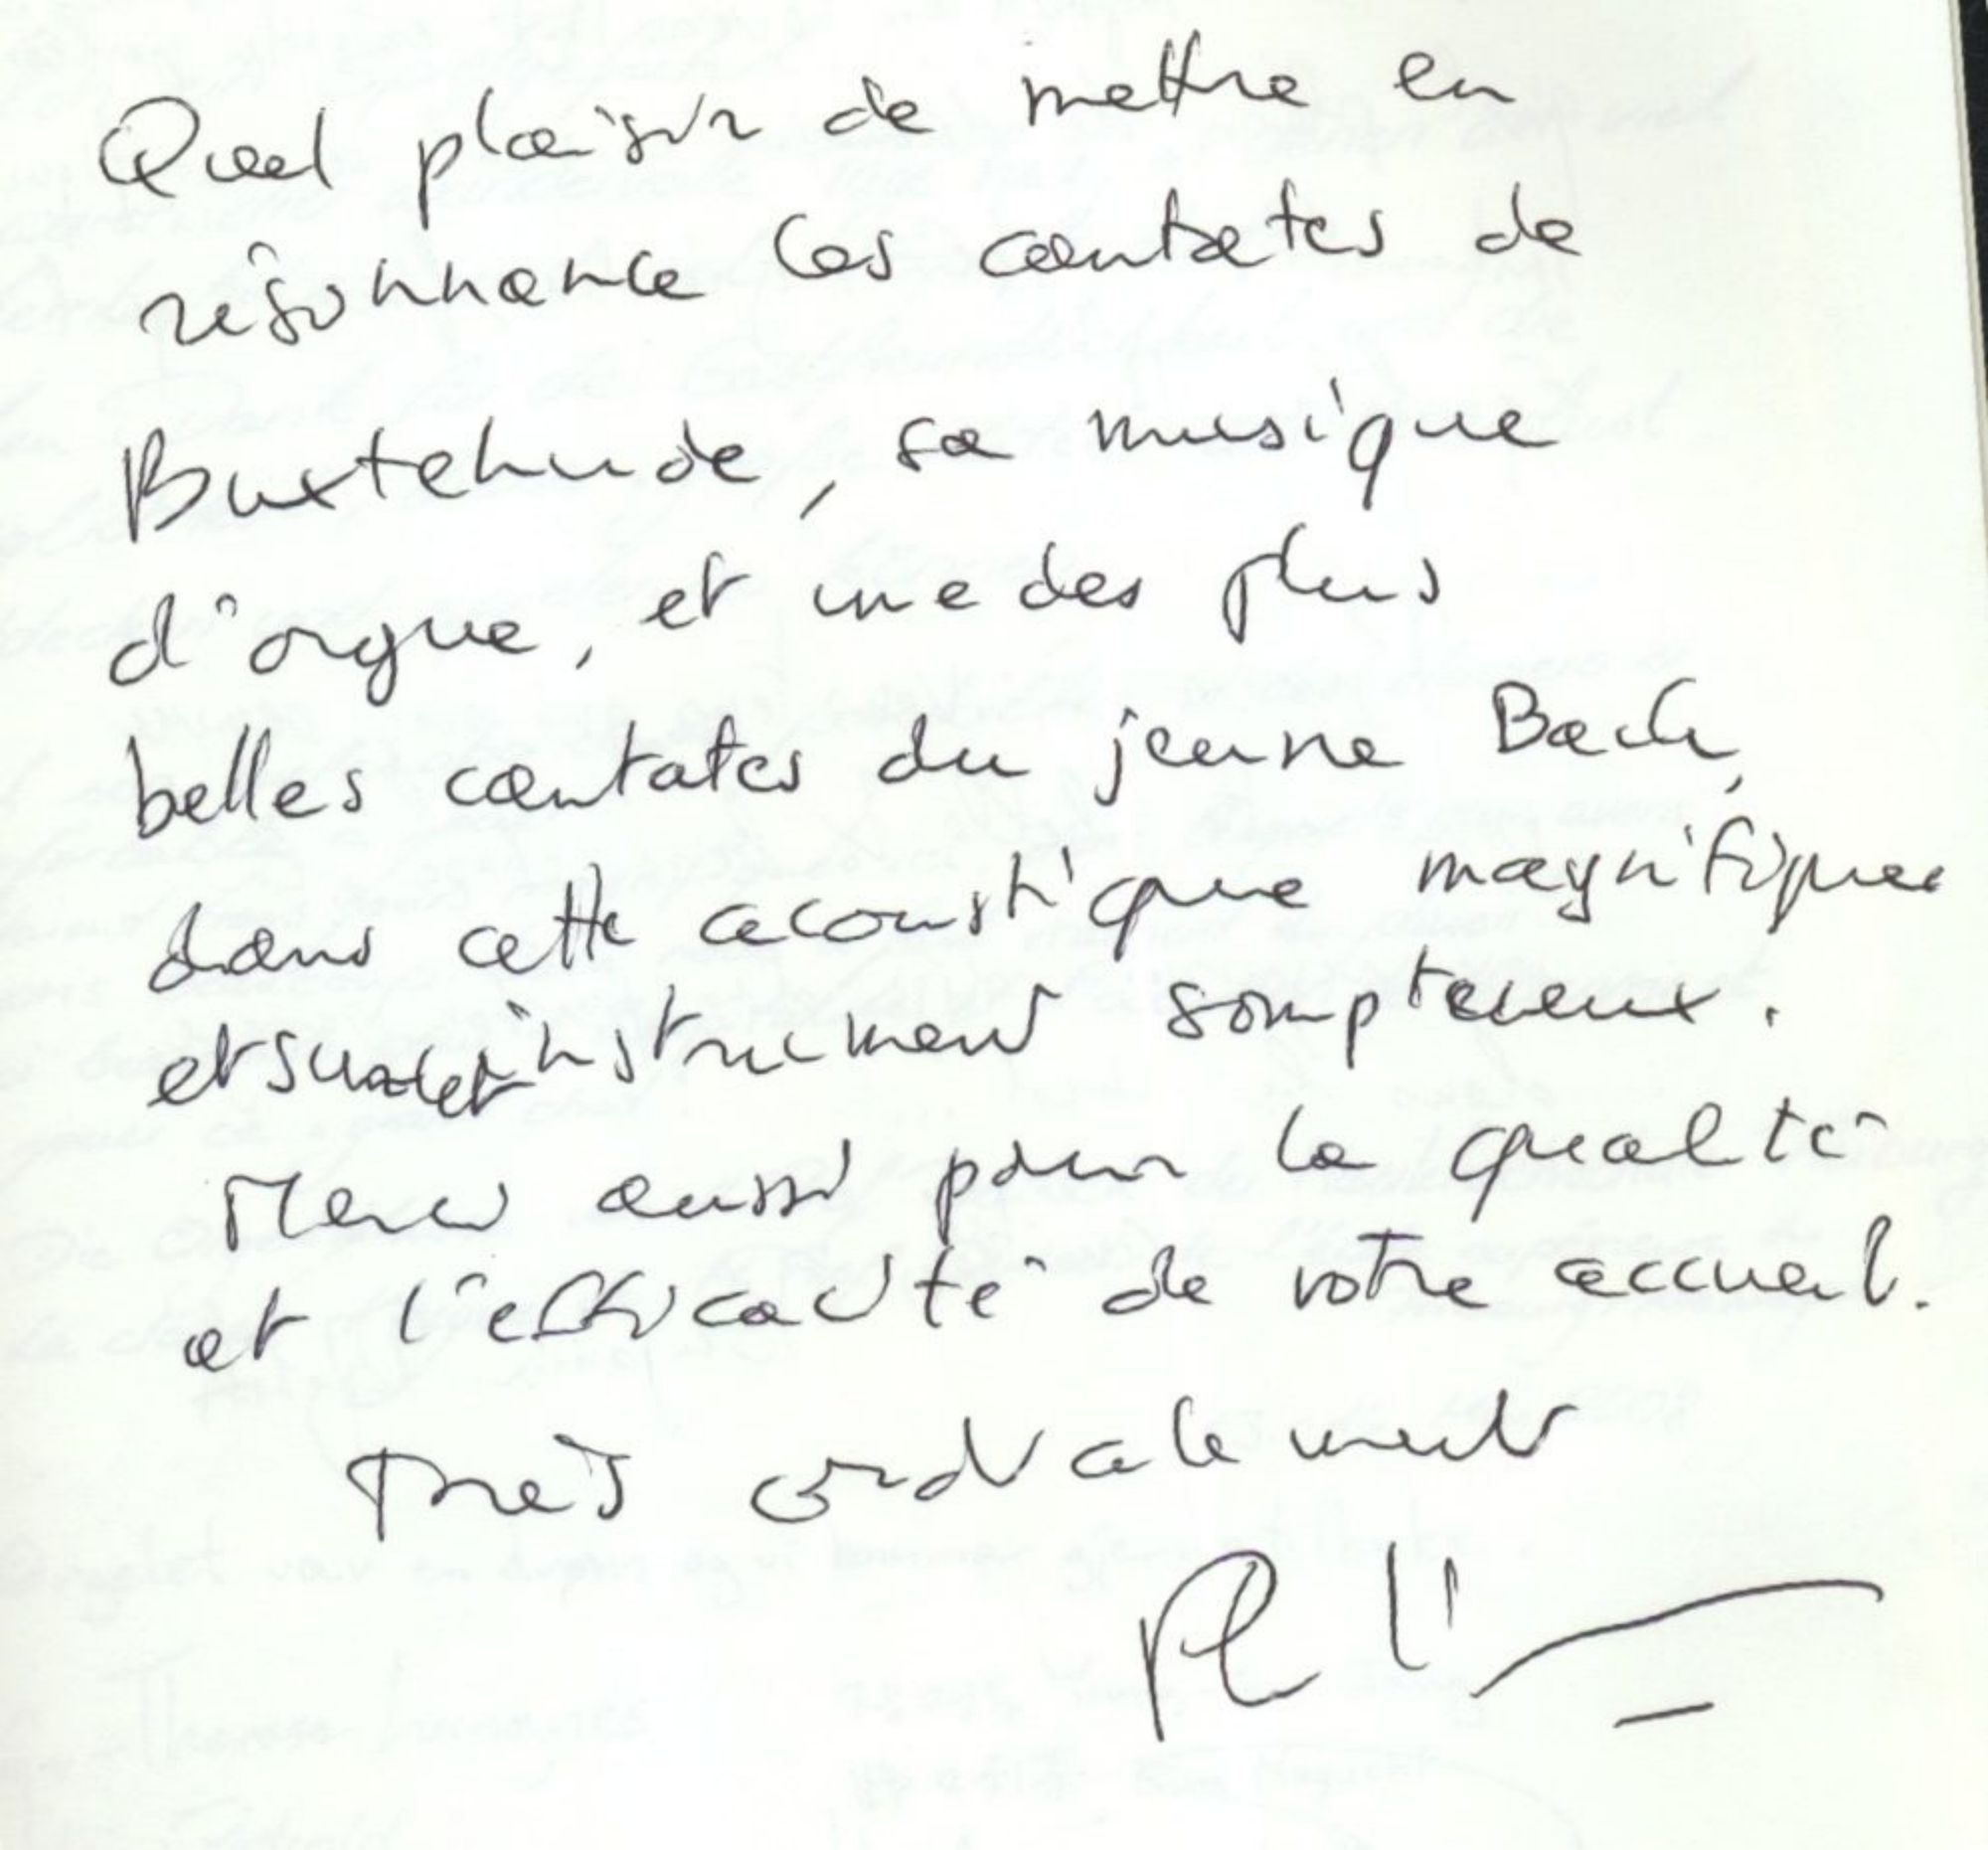 Quel plaisir de mettre en
résonnance les cantates de
Buxtehude, sa musique
d'orgue, et une des plus
belles cantates du jeune Bach,
dans cette acoustique magnifique
et sur cet instrument somptueux.
Merci aussi pour la qualité
et l'efficacité de votre accueil.
Très cordialement